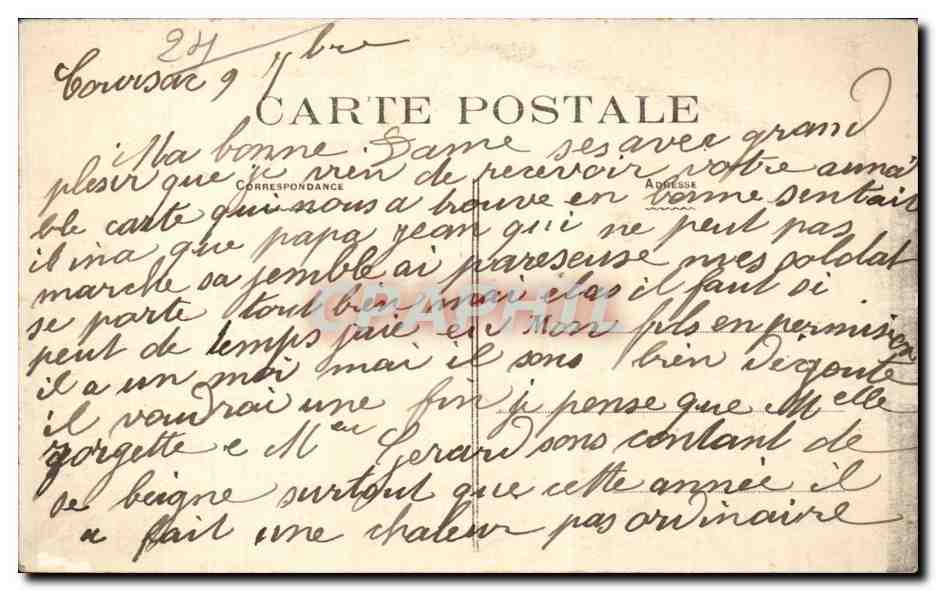 24
Coursac 9 7bre
CARTE POSTALE
Ma bonne Dame ses avec grand
plesir que je vien de recevoir votre aima
CORRESPONDANCE
ADRESSE
ble carte qui nous a trouve en bonne sentait
il ina que papa jean qui ne peut pas
marche sa jemble ai pareseuse mes soldat
se porte tout bien mai elas il faut si
peut de temps jaie eu Mon fils en permision
il a un moi mai il sons bien dégouté
il voudrai une fin je pense que Melle
gorgette e Meu Gerard sons contant de
se beigne surtout que cette année il
a fait une chaleur pas ordinaire
CRAPHIL